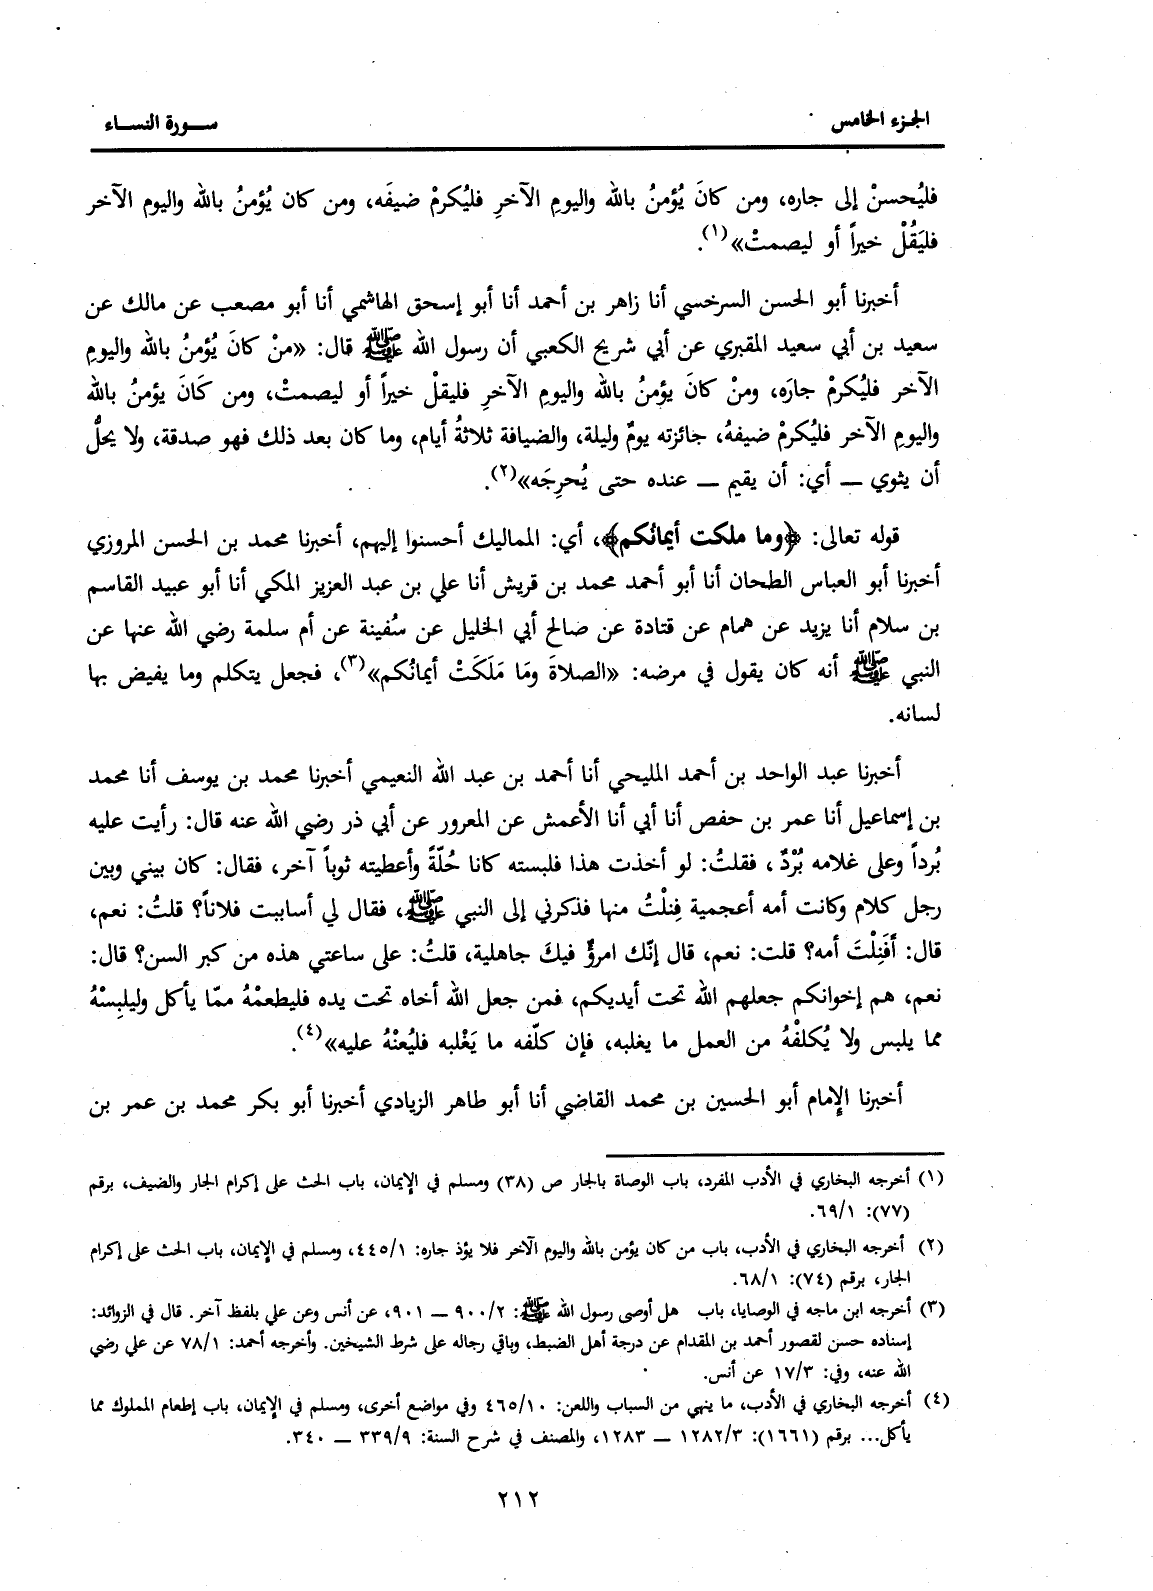 الجزء الخامس
سورة النساء
فليُحسنْ إلى جاره، ومن كانَ يُؤمنُ بالله واليومِ الآخرِ فليُكرمْ ضيفَه، ومن كان يُؤمنُ بالله واليوم الآخر
فليَقُلْ خيراً أو ليصمتْ»(١).
أخبرنا أبو الحسن السرخسي أنا زاهر بن أحمد أنا أبو إسحق الهاشمي أنا أبو مصعب عن مالك عن
سعيد بن أبي سعيد المقبري عن أبي شريح الكعبي أن رسول الله ﷺ قال: «منْ كانَ يُؤمنُ بالله واليومِ
الآخر فليُكرمْ جارَه، ومنْ كانَ يؤمنُ بالله واليومِ الآخرِ فليقلْ خيراً أو ليصمتْ، ومن كَانَ يؤمنُ بالله
واليومِ الآخر فليُكرمْ ضيفهُ، جائزته يومٌ وليلة، والضيافة ثلاثةُ أيام، وما كان بعد ذلك فهو صدقة، ولا يحلُّ
أن يثوي ــ أي: أن يقيم ــ عنده حتى يُحرِجَه»(٢).
قوله تعالى: ﴿وما ملكت أيمانُكم﴾، أي: المماليك أحسنوا إليهم، أخبرنا محمد بن الحسن المروزي
أخبرنا أبو العباس الطحان أنا أبو أحمد محمد بن قريش أنا علي بن عبد العزيز المكي أنا أبو عبيد القاسم
بن سلام أنا يزيد عن همام عن قتادة عن صالح أبي الخليل عن سفينة عن أم سلمة رضي الله عنها عن
النبي ﷺ أنه كان يقول في مرضه: «الصلاةَ ومَا مَلَكَتْ أيمانُكم»(٣)، فجعل يتكلم وما يفيض بها
لسانه.
أخبرنا عبد الواحد بن أحمد المليحي أنا أحمد بن عبد الله النعيمي أخبرنا محمد بن يوسف أنا محمد
بن إسماعيل أنا عمر بن حفص أنا أبي أنا الأعمش عن المعرور عن أبي ذر رضي الله عنه قال: رأيت عليه
بُرداً وعلى غلامه بُرْدٌ، فقلتُ: لو أخذت هذا فلبسته كانا حُلّةً وأعطيته ثوباً آخر، فقال: كان بيني وبين
رجل كلام وكانت أمه أعجمية فِنلْتُ منها فذكرني إلى النبي ﷺ، فقال لي أساببت فلاناً؟ قلتُ: نعم،
قال: أَفَنِلْتَ أمه؟ قلت: نعم، قال إنّك امرؤٌ فيكَ جاهلية، قلتُ: على ساعتي هذه من كبر السن؟ قال:
نعم، هم إخوانكم جعلهم الله تحت أيديكم، فمن جعل الله أخاه تحت يده فليطعمْهُ ممّا يأكل وليلبِسْهُ
مما يلبس ولا يُكلفْهُ من العمل ما يغلبه، فإن كلّفه ما يَغْلبه فليُعنْهُ عليه»(٤).
أخبرنا الإمام أبو الحسين بن محمد القاضي أنا أبو طاهر الزيادي أخبرنا أبو بكر محمد بن عمر بن
(١) أخرجه البخاري في الأدب المفرد، باب الوصاة بالجار ص (٣٨) ومسلم في الإيمان، باب الحث على إكرام الجار والضيف، برقم
(٧٧): ٦٩/١.
(٢) أخرجه البخاري في الأدب، باب من كان يؤمن بالله واليوم الآخر فلا يؤذ جاره: ٤٤٥/١، ومسلم في الإيمان، باب الحث على إكرام
الجار، برقم (٧٤): ٦٨/١.
(٣) أخرجه ابن ماجه في الوصايا، باب هل أوصى رسول الله ﷺ: ٩٠٠/٢ ــ ٩٠١، عن أنس وعن علي بلفظ آخر. قال في الزوائد:
إسناده حسن لقصور أحمد بن المقدام عن درجة أهل الضبط، وباقي رجاله على شرط الشيخين. وأخرجه أحمد: ٧٨/١ عن علي رضي
الله عنه، وفي: ١٧/٣ عن أنس.
(٤) أخرجه البخاري في الأدب، ما ينهي من السباب واللعن: ٤٦٥/١٠ وفي مواضع أخرى، ومسلم في الإيمان، باب إطعام المملوك مما
يأكل... برقم (١٦٦١): ١٢٨٢/٣ ــ ١٢٨٣، والمصنف في شرح السنة: ٣٣٩/٩ ــ ٣٤٠.
٢١٢